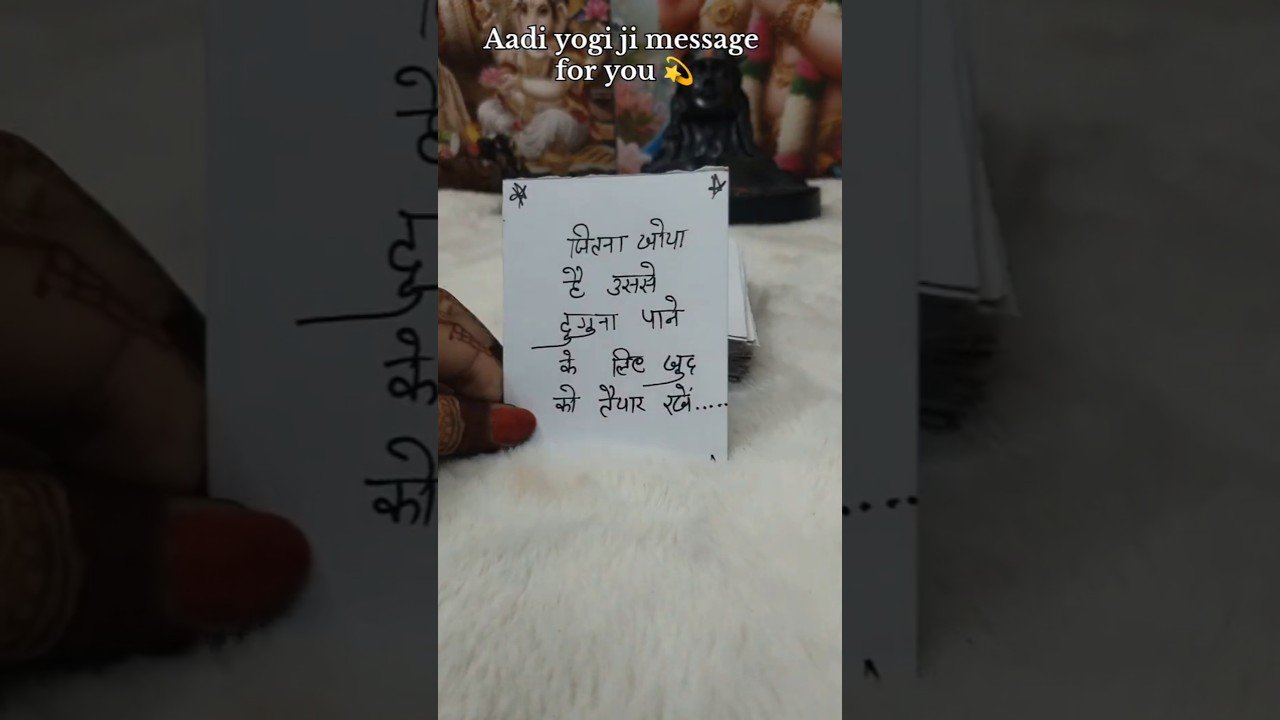 Aadi yogi ji message
for you 💫
जितना खोया
है उससे
दुगुना पाने
के लिए खुद
को तैयार रखें.....